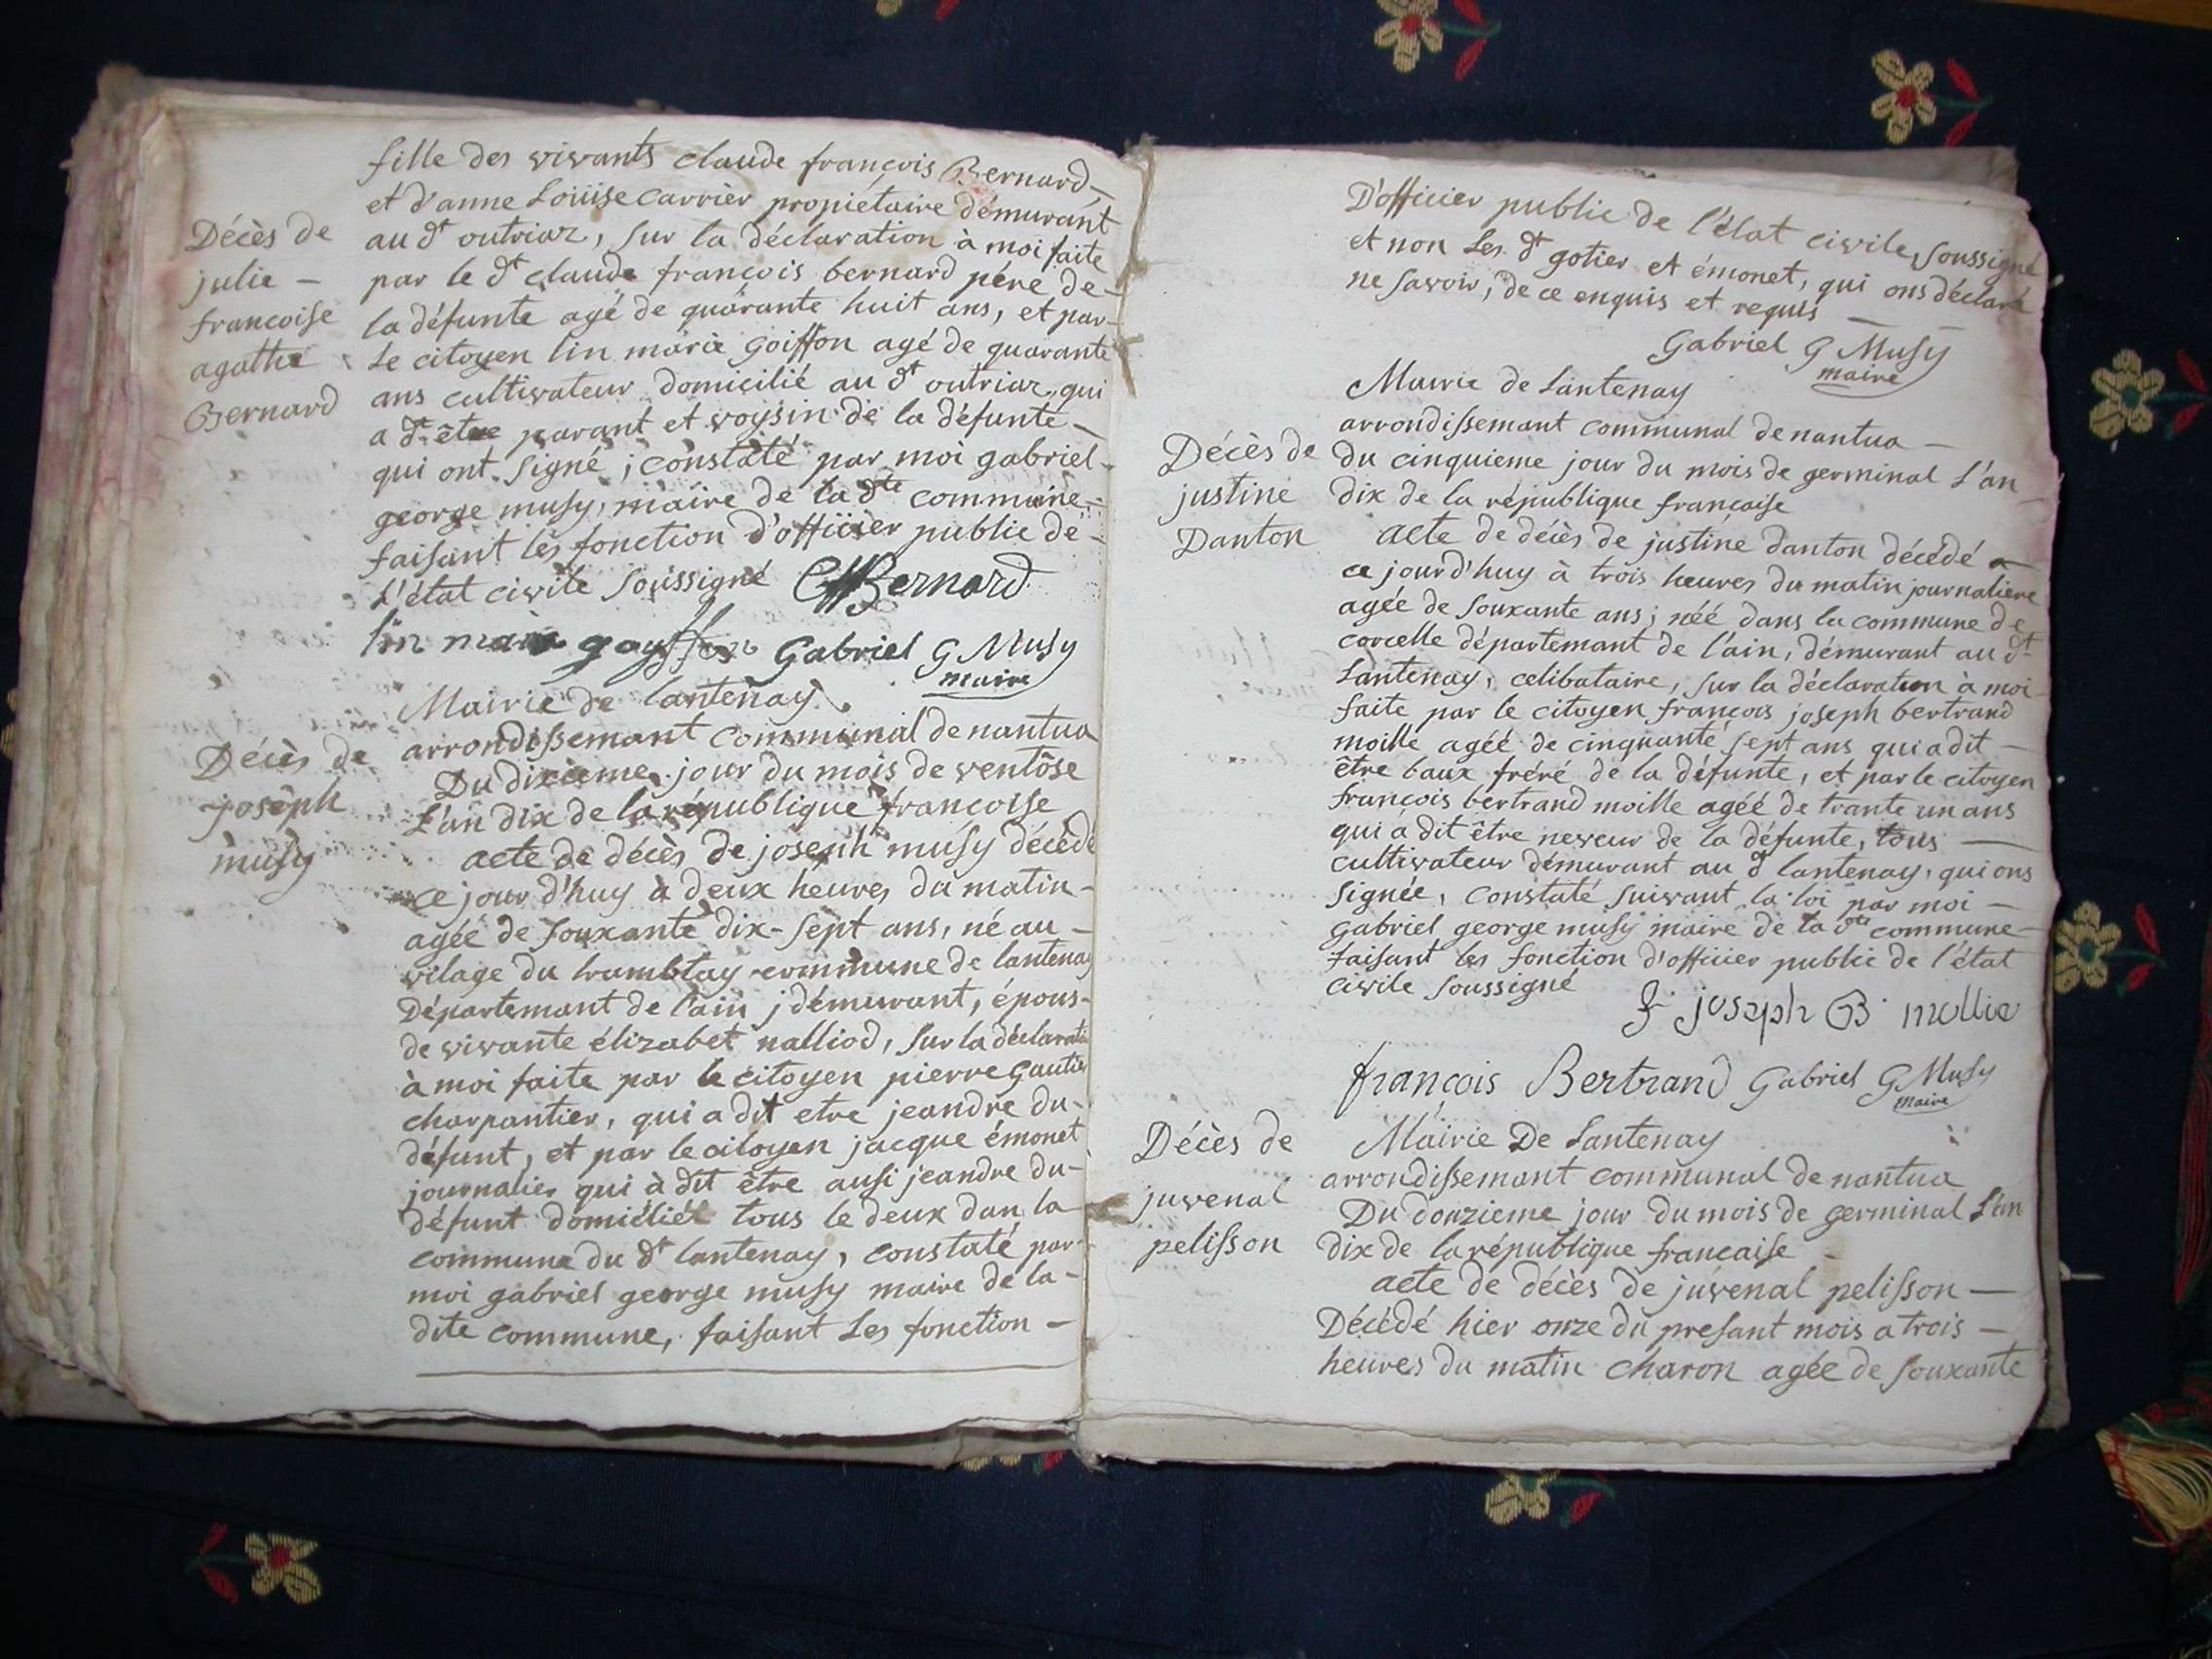 fille des vivants claude françois Bernard
et d'anne Loüise carrier propiétaire démurant
au dt outriaz, sur la déclaration à moi faite
par le dt claude françois bernard pére de
la défunte agé de quarante huit ans, et par
le citoyen lin marie goiffon agé de quarante
ans cultivateur domicilié au dt outriaz, qui
a dt être parant et voysin de la défunte
qui ont signé ; constaté par moi gabriel
george musy, maire de la dte commune
faisant les fonction d'officier public de
l'état civile soussigné CFBernard
lin marie goyffon Gabriel G Musy
maire
Décès de
julie
francoise
agathe
Bernard
Mairie de lantenay
arrondissemant communal de nantua
Du dixieme jour du mois de ventôse
L'an dix de la république francoise
Décès de
joseph
musy
acte de décès de joseph musy décédé
ce jour d'huy à deux heures du matin
agée de souxante dix-sept ans, né au
vilage du tramblay commune de lantenay
Département de l'ain j démurant, épous
de vivante élizabet nalliod, sur la déclaration
à moi faite par le citoyen pierre gautier
charpantier, qui a dit etre jeandre du
défunt, et par le citoyen jacque émonet
journalier qui à dit être ausi jeandre du
défunt domiciliét tous le deux dan la
commune du dt lantenay, constaté par
moi gabriel george musy maire de la
dite commune, faisant les fonction
D'officier public de l'état civile, soussigné
et non les dt gotier et émonet, qui ons déclaré
ne savoir, de ce enquis et requis
Gabriel G Musy
maire
Mairie de Lantenay
arrondissemant communal de nantua
Décès de
justine
Danton
du cinquieme jour du mois de germinal L'an
dix de la république francaise
acte de décès de justine danton décédé
ce jourd'huy à trois heures du matin journaliere
agée de souxante ans ; néé dans la commune de
corcelle départemant de l'ain, démurant au dt
Lantenay, celibataire, sur la déclaration à moi
faite par le citoyen françois joseph bertrand
moille agéé de cinquante sept ans qui a dit
être baux fréré de la défunte, et par le citoyen
françois bertrand moille agéé de trante un ans
qui à dit être neveur de la défunte, tous
cultivateur démurant au dt lantenay, qui ons
signée, constaté suivant la loi par moi
gabriel george musy maire de la dte commune
faisant les fonction d'officier public de l'état
civile soussigné
f joseph B mollie
françois Bertrand Gabriel G Musy
maire
Décès de
juvenal
pelisson
Mairie De Lantenay
arrondissemant communal de nantua
Du douzieme jour du mois de germinal L'an
dix de la république francaise
acte de décès de juvenal pelisson
Décédé hier onze du presant mois a trois
heures du matin charon agée de souxante